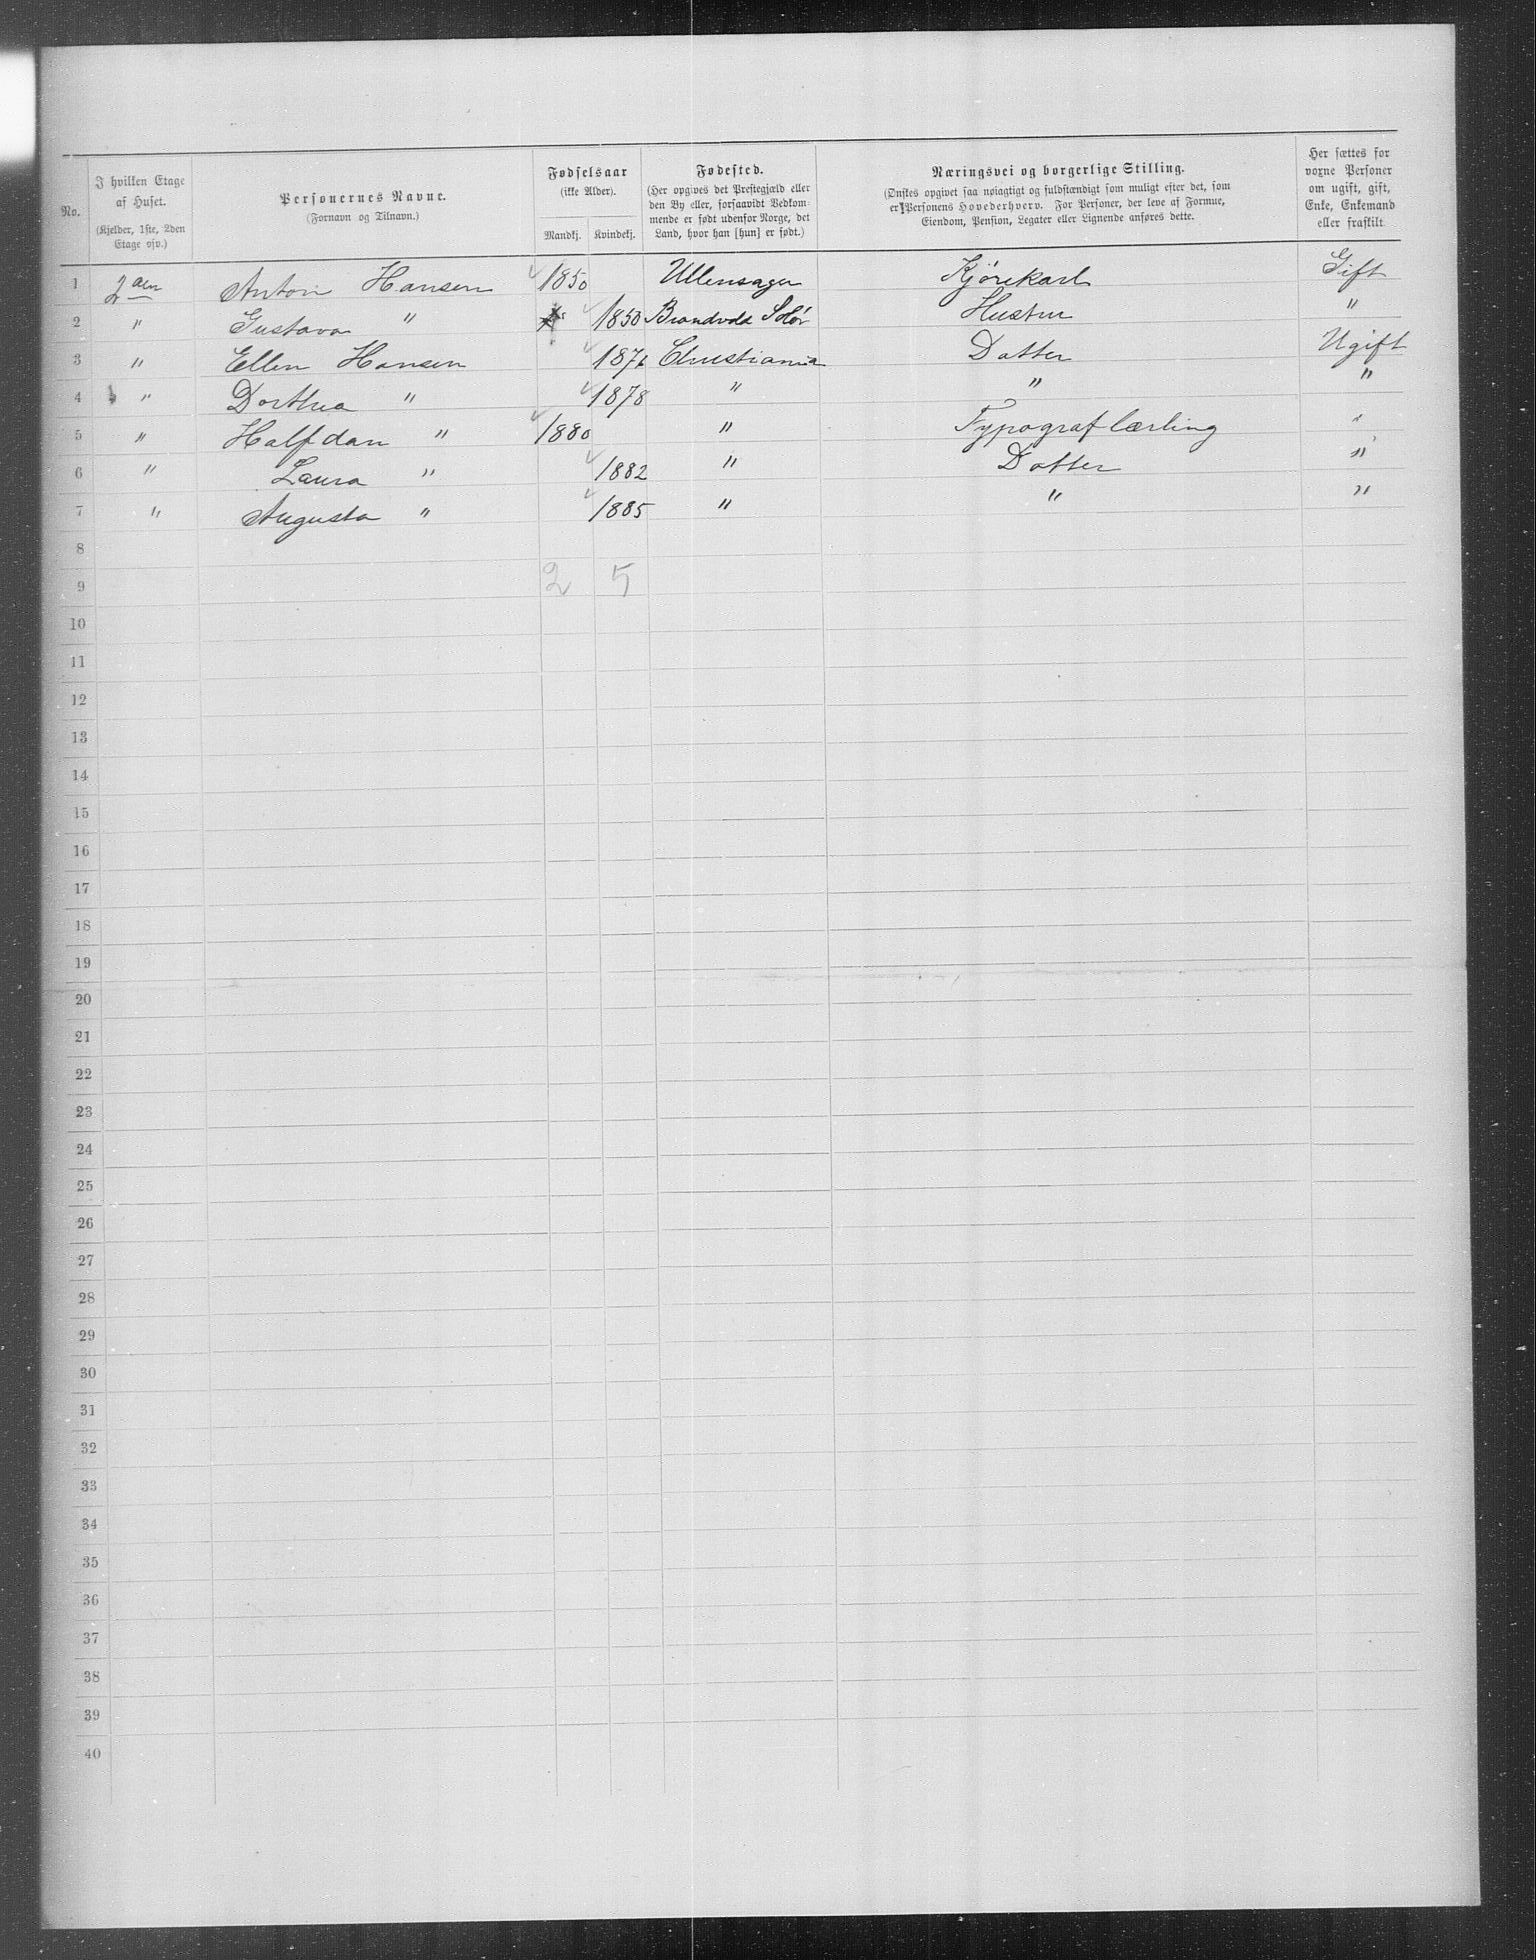 No.	I hvilken Etage af Huset. (Kjelder, 1ste, 2den Etage osv.)	Personernes Navne. (Fornavn og Tilnavn.)	Fødselsaar (ikke Alder). Mandkj. Kvindekj.	Fødested. (Her opgives det Prestegjæld eller den By eller, forsaavidt Vedkommende er født udenfor Norge, det Land, hvor han [hun] er født.)	Næringsvei og borgerlige Stilling. (Ønskes opgivet saa nøiagtigt og fuldstændigt som muligt efter det, som er Personens Hovederhverv. For Personer, der leve af Formue, Eiendom, Pension, Legater eller Lignende anføres dette.)	Her sættes for voxne Personer om ugift, gift, Enke, Enkemand eller fraskilt
1 2den Anton Hansen 1850 Ullensager Kjørekarl Gift
2 " Gustava " 1850 Brandvold Solør Hustru "
3 " Ellen Hansen Christiania Datter Ugift
4 " Dorthea " 1878 " " "
5 " Halfdan " 1880 " Typograflærling "
6 " Laura " 1882 " Datter "
7 " Augusta " 1885 " " "
8
9 2 5
10
11
12
13
14
15
16
17
18
19
20
21
22
23
24
25
26
27
28
29
30
31
32
33
34
35
36
37
38
39
40